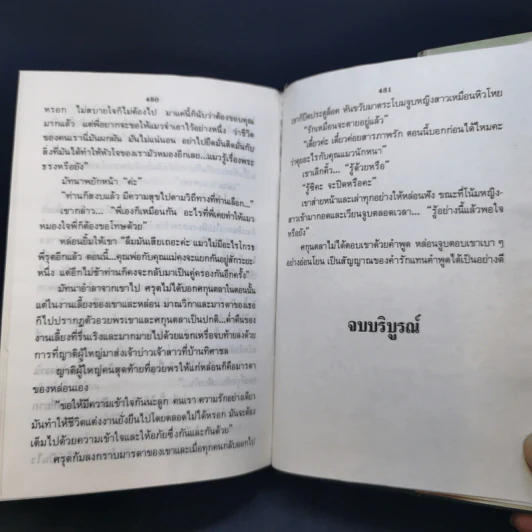 480
หรอก ไม่สบายใจก็ไม่ต้องไป มาแค่นี้ก็นับว่าต้องขอบคุณ
มากแล้ว แต่พี่อยากจะขอให้แมวจำเอาไว้อย่างหนึ่ง ว่าชีวิต
ของคนเรานี่มันผกผัน มันไม่แน่นอน อย่าไปยึดมันติดมั่นกับ
สิ่งที่มันได้ทำให้หัวใจของเรามัวหมองอีกเลย...แมวรู้เรื่องพระ
ธรรมหรือยัง"
มัทนาพยักหน้า "ค่ะ"
"ท่านก็สงบแล้ว มีความสุขไปตามวิถีทางที่ท่านเลือก..."
เขากล่าว... "พี่เองก็เหมือนกัน อะไรที่พี่เคยทำให้แมว
หมองใจพี่ก็ต้องขอโทษด้วย"
หล่อนยิ้มให้เขา "ลืมมันเสียเถอะค่ะ แมวไม่มีอะไรโกรธ
พี่รุตอีกแล้ว ตอนนี้...คุณพ่อกับคุณแม่คงจะแยกกันอยู่สักระยะ
หนึ่ง แต่อีกไม่ช้าท่านก็คงจะกลับมาเป็นคู่ครองกันอีกครั้ง"
มัทนาอำลาจากเขาไป ศรุตไม่ได้บอกศกุนตลาในตอนนั้น
แต่ในงานเลี้ยงของเขาและหล่อน ม่านวิกาและมารดาของเธอ
ก็ไปปรากฏตัวอวยพรเขาและศกุนตลาเป็นปกติ...ค่ำคืนของ
งานเลี้ยงที่รื่นเริงและมากมายไปด้วยแขกเหรื่อจบท้ายลงด้วย
การที่ญาติผู้ใหญ่มาส่งเจ้าบ่าวเจ้าสาวที่บ้านทิศาชล
ญาติผู้ใหญ่คนสุดท้ายที่อวยพรให้แก่หล่อนก็คือมารดา
ของหล่อนเอง
"ขอให้มีความเข้าใจกันนะลูก คนเรา ความรักอย่างเดียว
มันทำให้ชีวิตแต่งงานยั่งยืนไปโดยตลอดไม่ได้หรอก มันจะต้อง
เต็มไปด้วยความเข้าใจและให้อภัยซึ่งกันและกันด้วย"
ศรุตก้มลงกราบมารดาของเขาและเมื่อทุกคนกลับออกไป
481
เขาก็ปิดประตูล็อค หันขวับมาตระโบมจูบหญิงสาวเหมือนหิวโหย
"รักเหมือนจะตายอยู่แล้ว"
"เดี๋ยวค่ะ เดี๋ยวค่อยสารภาพรัก ตอนนี้บอกก่อนได้ไหมคะ
ว่าคุยอะไรกับคุณแมวนักหนา"
เขาเลิกคิ้ว... "รู้ด้วยหรือ"
"รู้ซิคะ จะปิดหรือคะ"
เขาส่ายหน้าและเล่าทุกอย่างให้หล่อนฟัง ขณะที่โน้มหญิง-
สาวเข้ามากอดและเวียนจูบตลอดเวลา... "รู้อย่างนี้แล้วพอใจ
หรือยัง"
ศกุนตลาไม่ได้ตอบเขาด้วยคำพูด หล่อนจูบตอบเขาเบา ๆ
อย่างอ่อนโยน เป็นสัญญาณของคำรักแทนคำพูดได้เป็นอย่างดี
จบบริบูรณ์